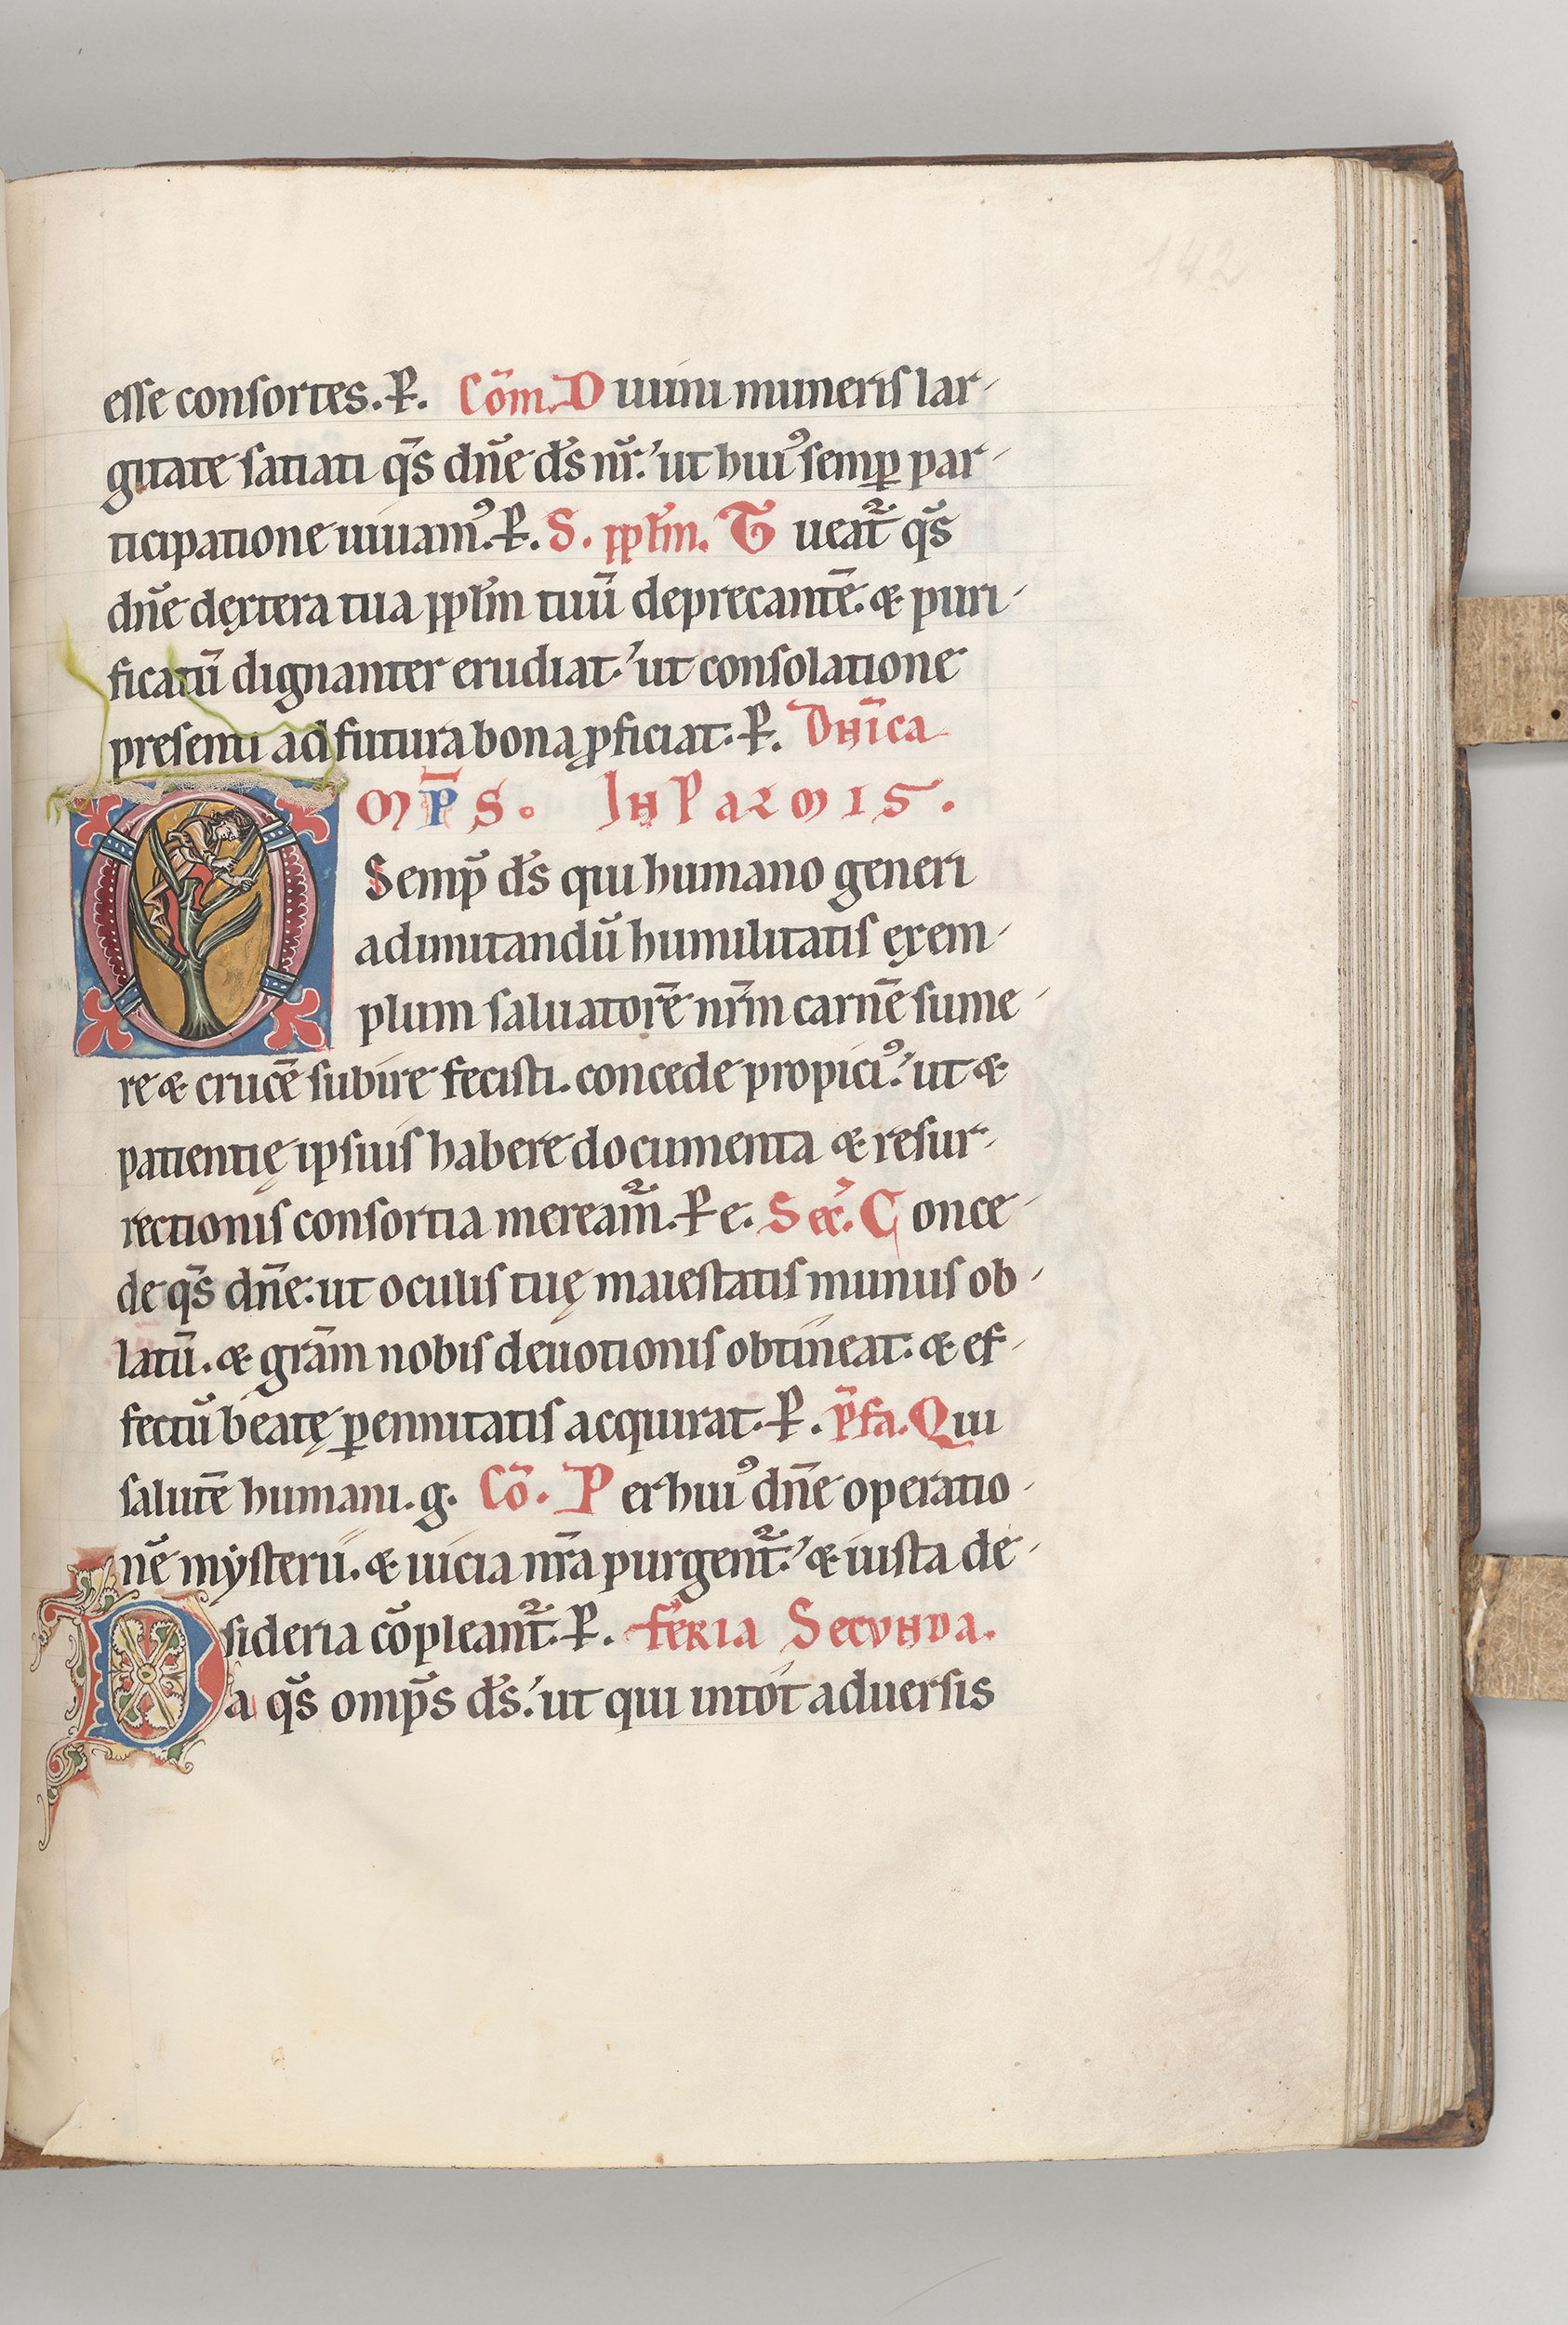 142
esse consortes. P. Cōm. Diuini muneris lar-
gitate satiati q̄s dn̄e ds̄ nr̄. ut hui᾿ semp̲ par-
ticipatione uiuam᾿. P. S. pplm̄. Tueat᷑ q̄s
dn̄e dextera tua pplm̄ tuū deprecantē. & puri-
ficatū dignanter erudiat. ut consolatione
presenti ad futura bona ꝓficiat. P. Dn̄ica
OMP̄S. In Palmis.
Semp̄ ds̄ qui humano generi
ad imitandū humilitatis exem-
plum saluatorē nr̄m carnē sume-
re & crucē subire fecisti. concede propici᾿. ut &
patientię ipsius habere documenta & resur-
rectionis consortia meream᷑. Pe. Sec̄. Conce-
de q̄s dn̄e. ut oculis tuę maiestatis munus ob-
latū. & grām nobis deuotionis obtineat. & ef-
fectū beatę ꝑennitatis acquirat. P. p̄fa. Qui
salutē humani. g. Cō. Per hui᾿ dn̄e operatio-
nē mysterii. & uicia nr̄a purgent᷑. & iusta de-
sideria cōpleant᷑. P. Feria Secunda.
Da q̄s omp̄s ds̄. ut qui in tot aduersis